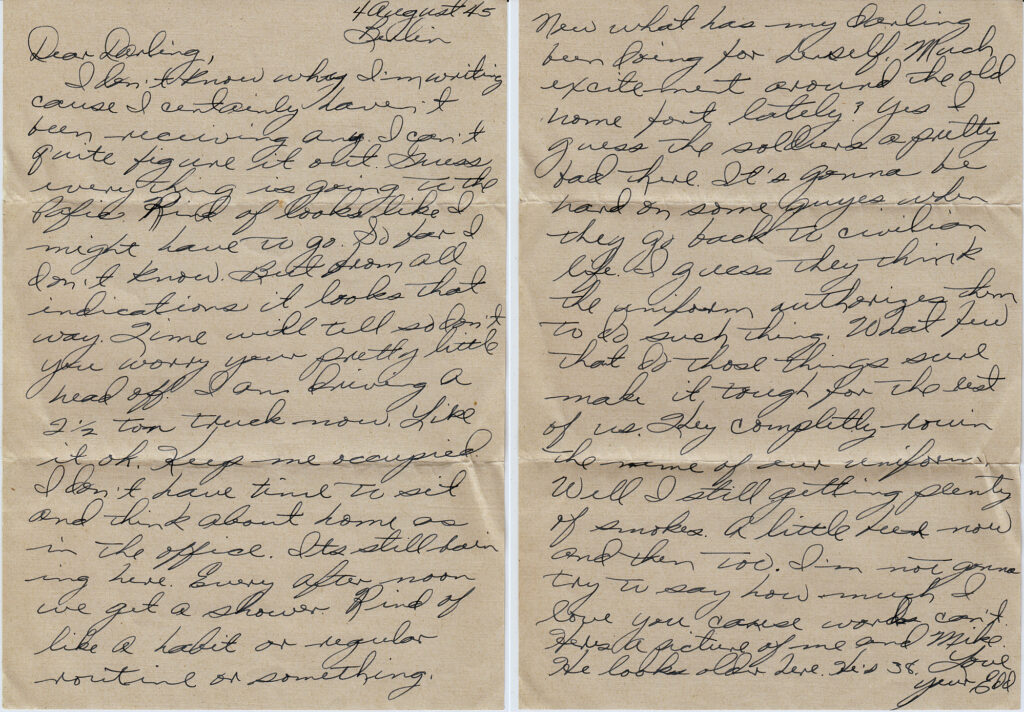 4 August 45
Berlin
Dear Darling,
I don't know why I'm writing
cause I certainly haven't
been receiving any. I can't
quite figure it out. Guess
everything is going to the
Pafic. Kind of looks like I
might have to go. So far I
don't know. But from all
indications it looks that
way. Time will tell so don't
you worry your pretty little
head off. I am driving a
2½ ton truck now. Like
it ok. Keep me occupied.
I don't have time to sit
and think about home as
in the office. Its still
ing here. Every after noon
we get a shower. Kind of
like a habit or regular
routine or something.
Now what has my Darling
been doing for herself. Much
excitement around the old
home fort lately? Yes I
guess the soldiers a pretty
bad here. It's gonna be
hard on some guyes when
they go back to civilian
life. I guess they think
the uniform authorizes them
to do such thing. What few
that do those things sure
make it tough for the rest
of us. They completly rouin
the name of our uniform.
Well I still getting plenty
of smokes. A little beer now
and then too. I'm not gonna
try to say how much I
love you cause words can't.
Heres a picture of me and Mike.
He looks older here. He's 38. Love
your Edd